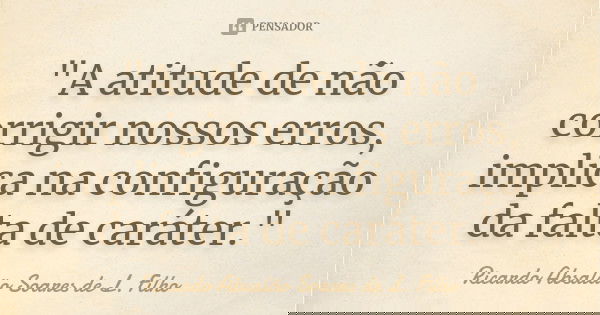 PENSADOR
"A atitude de não
corrigir nossos erros,
implica na configuração
da falta de caráter."
Ricardo Absalão Soares de L. Filho